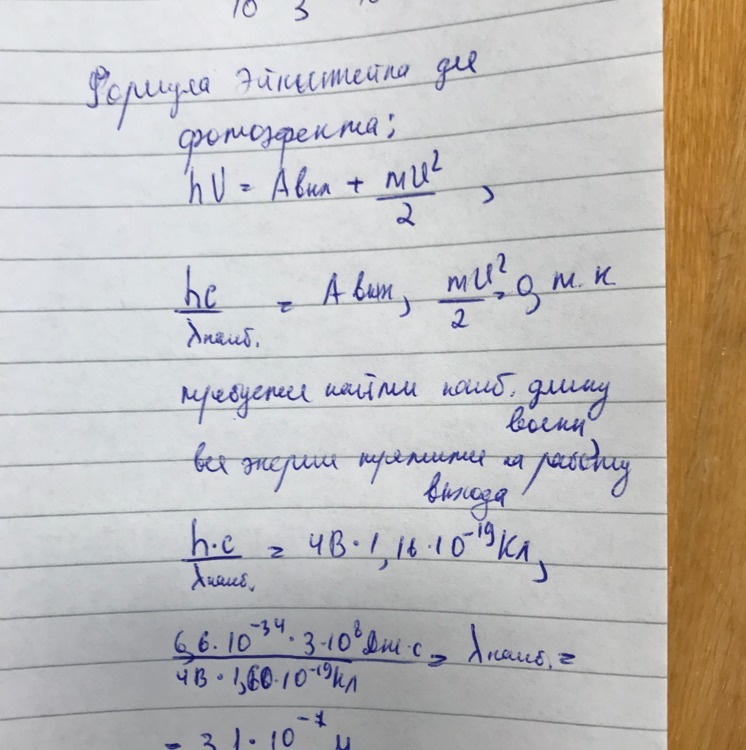 10 3 10
Формула Эйнштейна для
фотоэфекта:
hν = Aвых + mU²/2 ,
hc/λнаиб. = Aвых, mU²/2 = 0, т.к
требуется найти наиб. длину
волны,
вся энергия тратится на работу
выхода
h·c/λнаиб. = 4В·1,16·10⁻¹⁹Кл,
6,6·10⁻³⁴·3·10⁸Дж·с/4В·1,60·10⁻¹⁹Кл = λнаиб. =
= 3,1·10⁻⁷ м